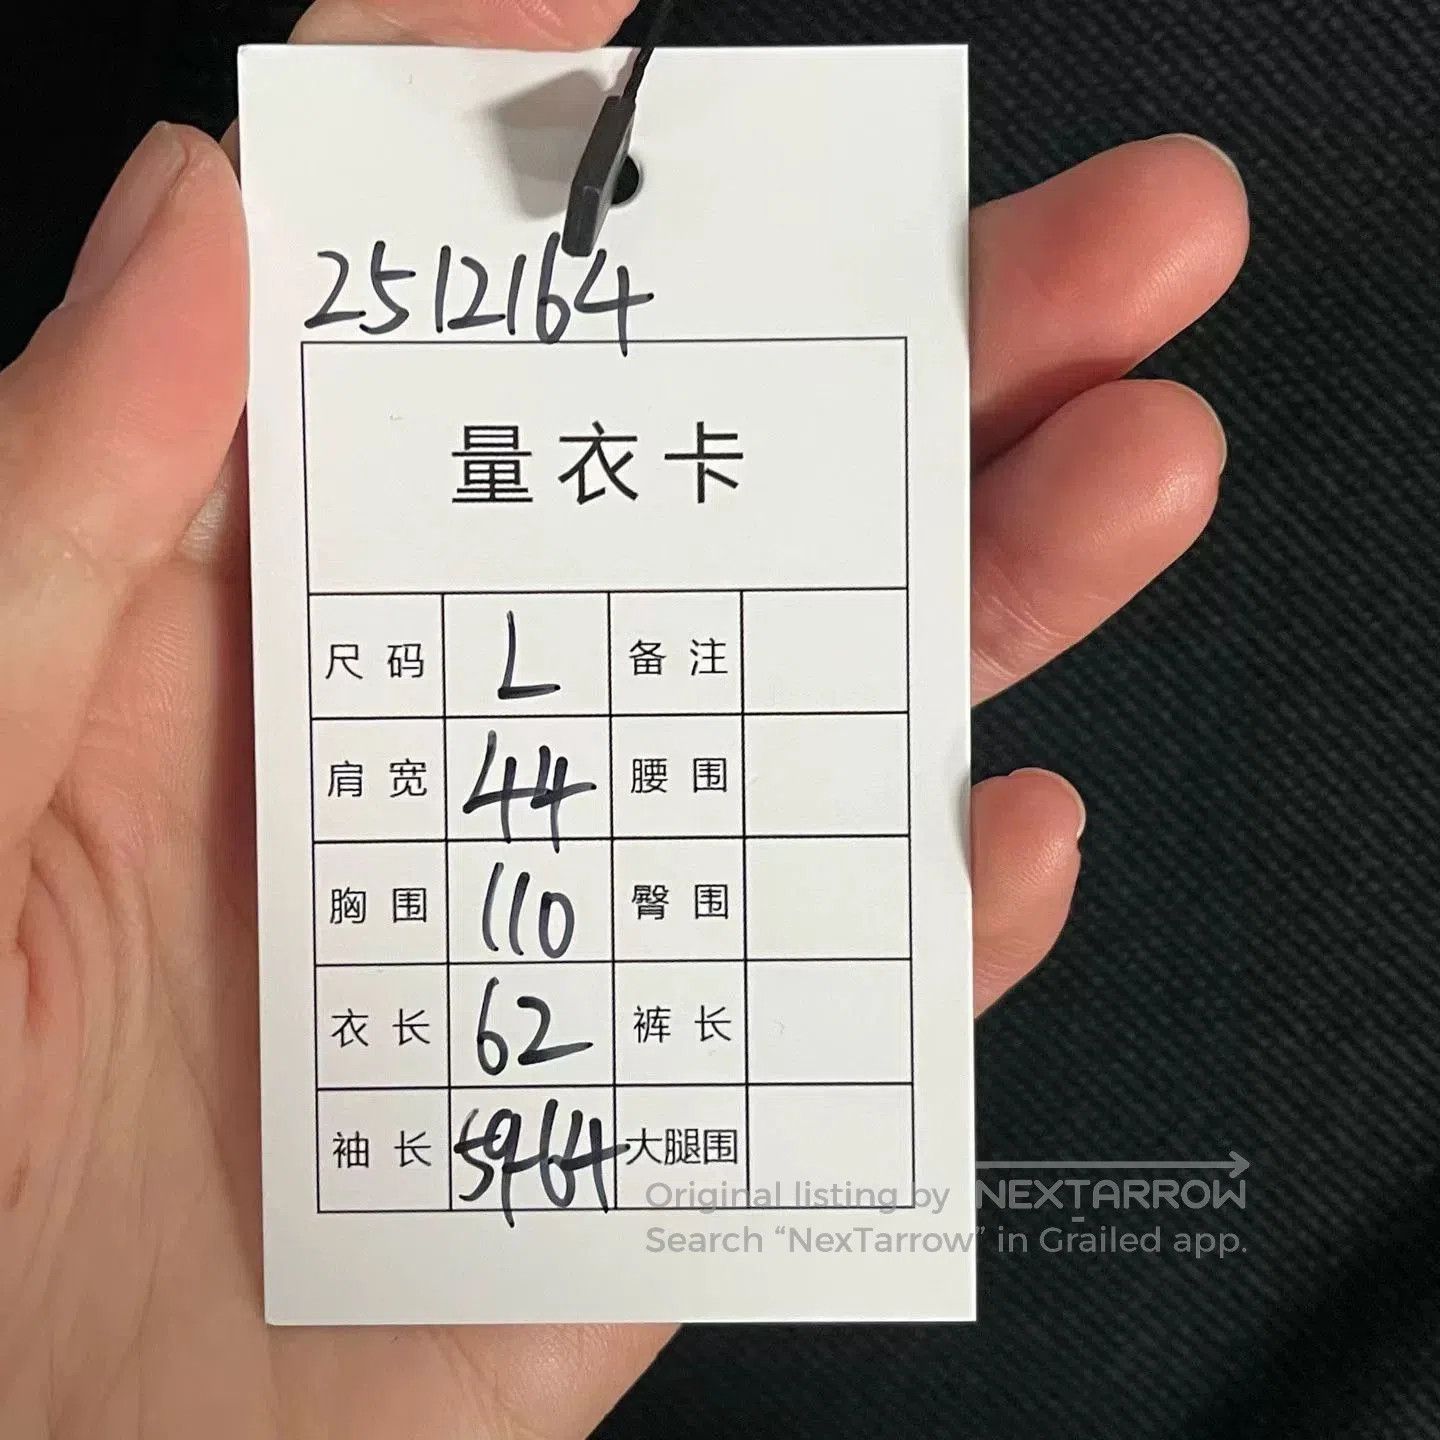 2512164
量衣卡
尺码 L 备注
肩宽 44 腰围
胸围 110 臀围
衣长 62 裤长
袖长 5964 大腿围
Original listing by NEXTARROW
Search “NexTarrow” in Grailed app.